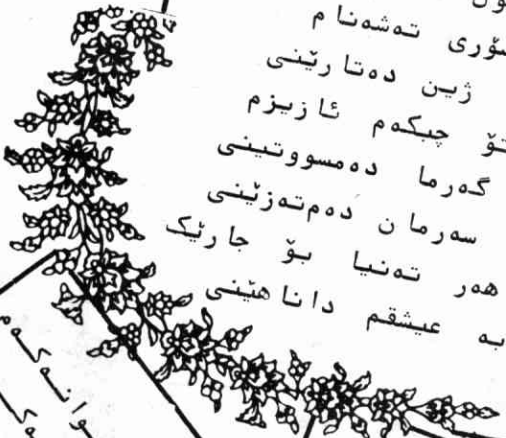 تەشەنام
ژین دەتارێنی
چبکەم ئازیزم
گەرما دەمسووتینی
سەرمان دەمتەزێنی
هەر تەنیا بۆ جارێک
بە عیشقم داناهێنی